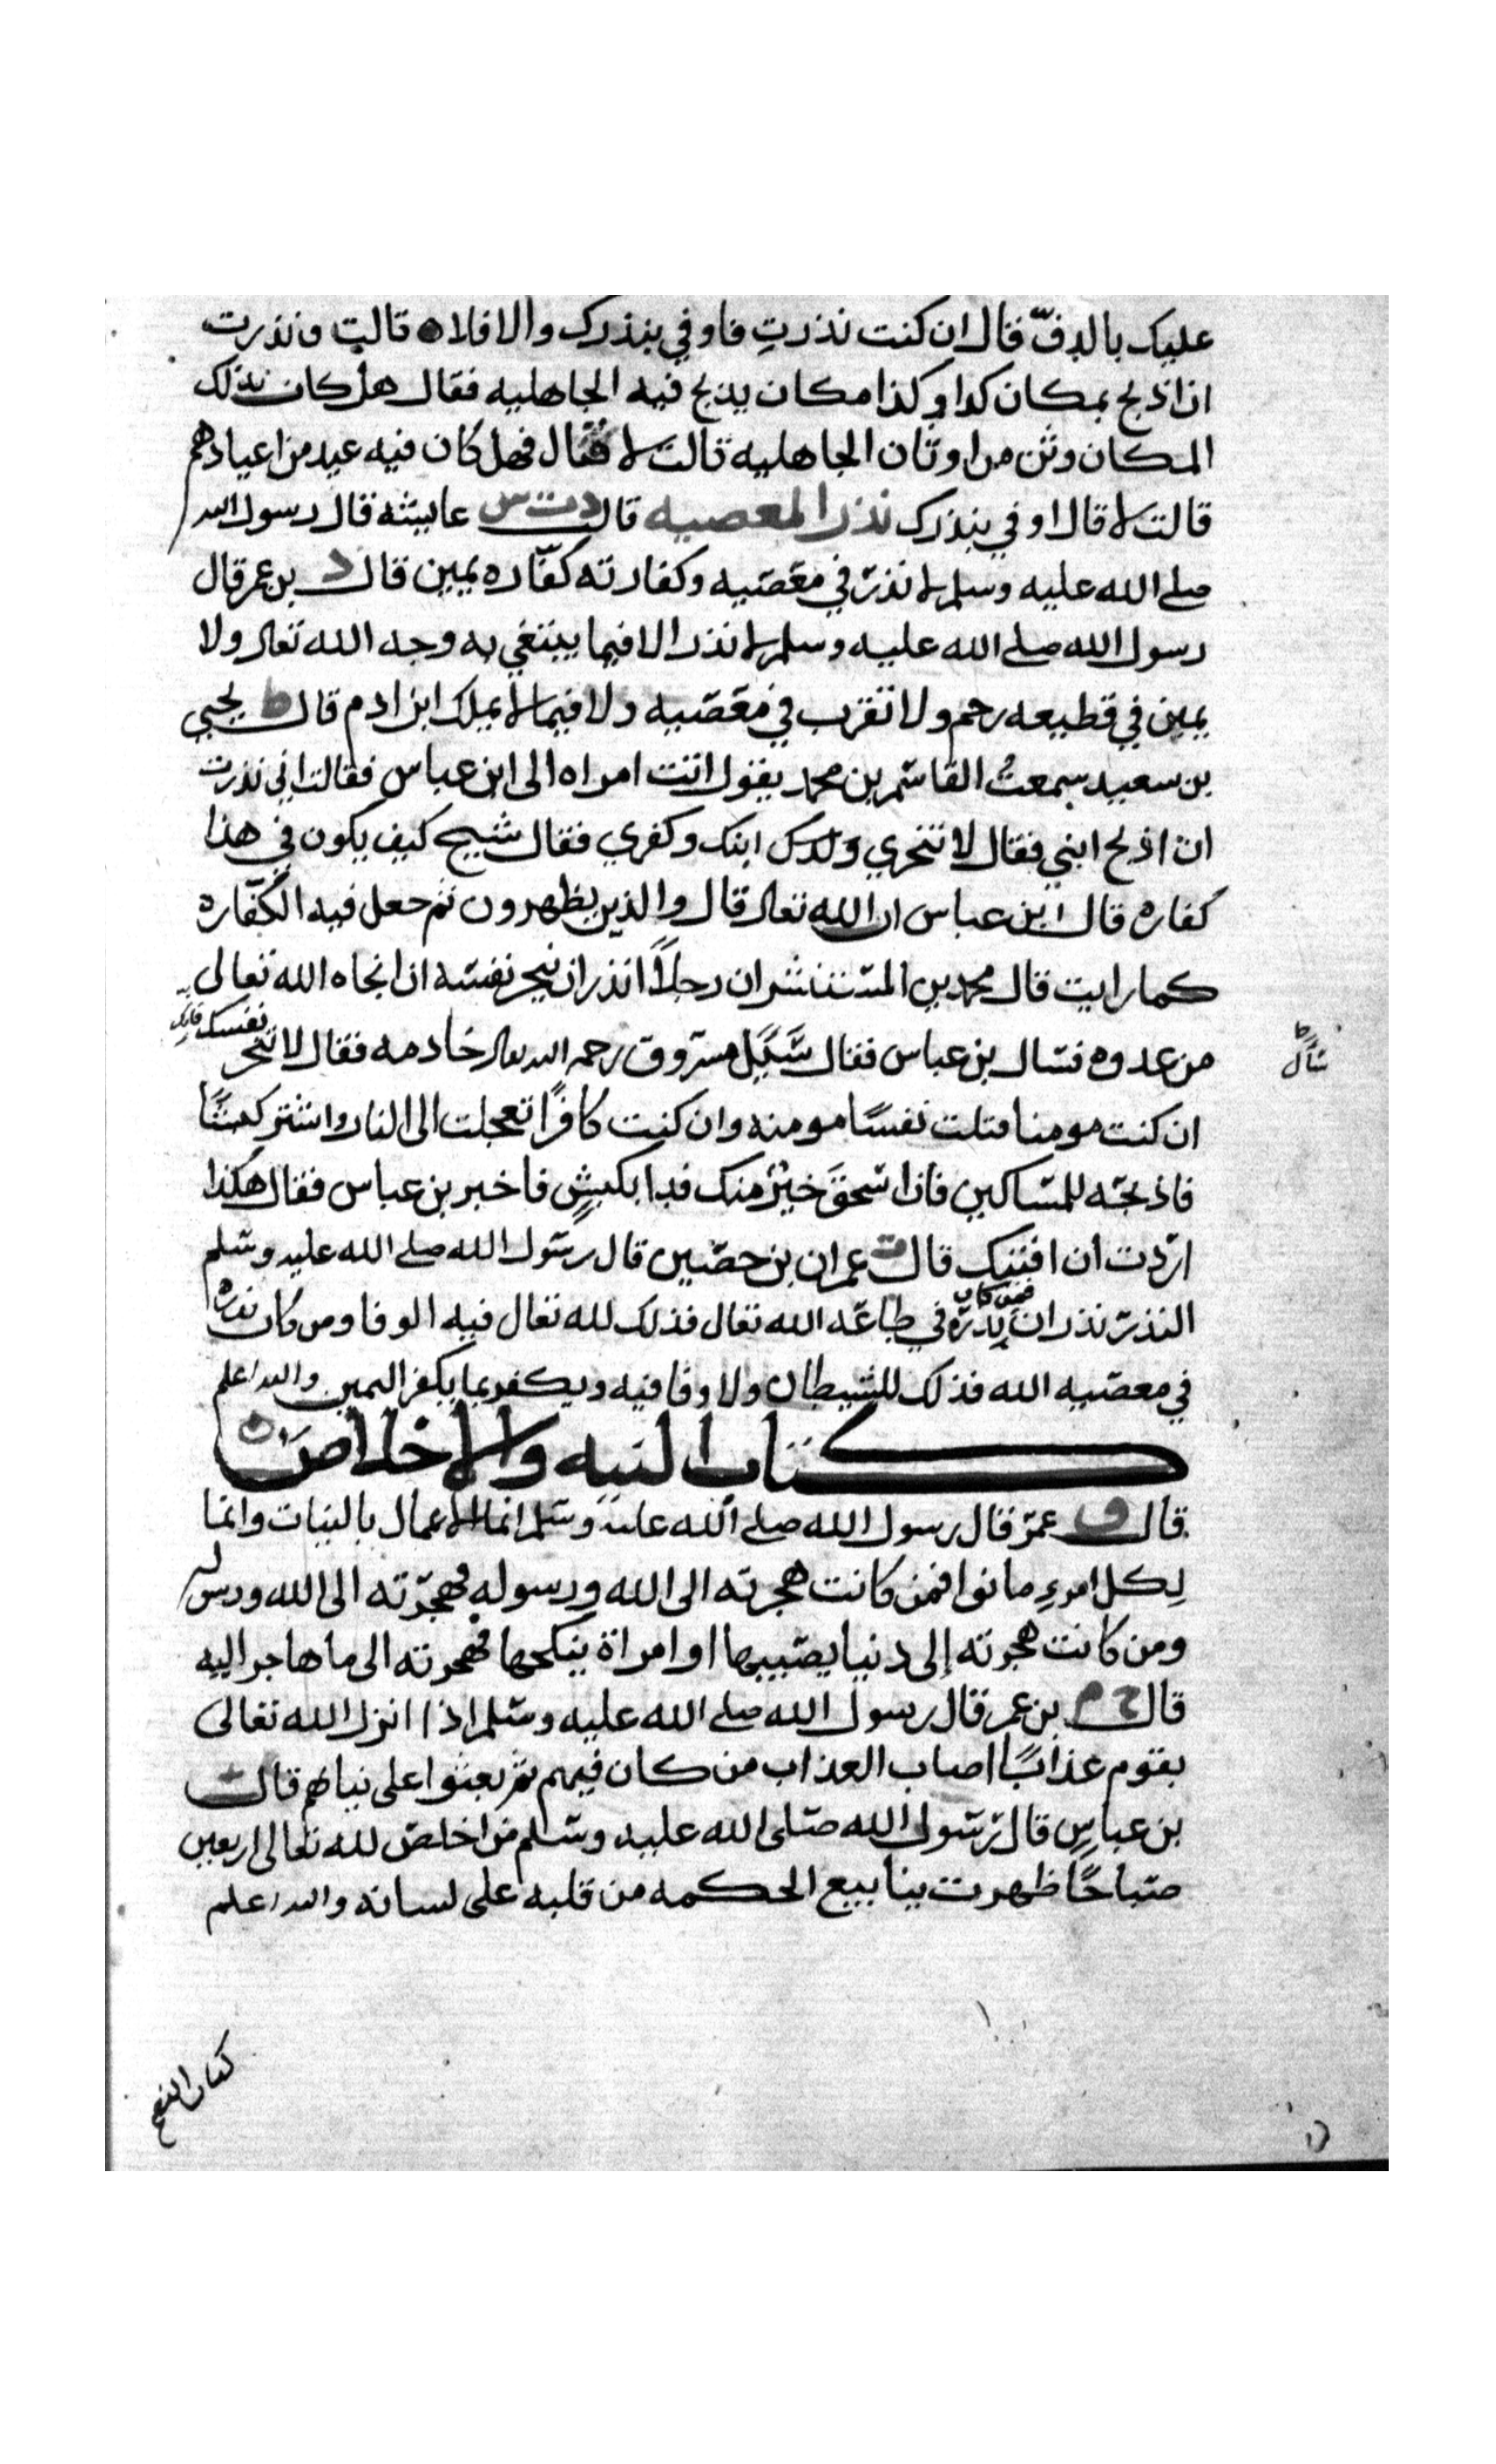 عليك بالدفّ قال ان كنت نذرتِ فاوفي بنذرك والا فلا ه قالت ونذرت
ان اذبح بمكان كدا وكذا مكان يذبح فيه الجاهليه فقال هل كان بذلك
المكان وثن من اوثان الجاهليه قالت لا فقال فهل كان فيه عيد من اعيادهم
قالت لا قال اوفي بنذرك نذر المعصيه قالت دت س عايشه قال رسول الله
صلى الله عليه وسلم لا نذر في معصيه وكفارته كفّاره يمين قال د بن عمر قال
رسول الله صلى الله عليه وسلم لا نذر الا فيما يبتغي به وجه الله تعالى ولا
يمين في قطيعه رحم ولا تقرب في معصيه ولا فيما لا يملك ابن ادم قال ط يحيى
بن سعيد سمعتُ القاسم بن محمد يقول اتت امراه الى ابن عباس فقالت اني نذرت
ان اذبح ابني فقال لا تنحري ابنك وكفري فقال شيخ كيف يكون في هذا
كفاره قال ابن عباس ان الله تعالى قال والذين يظهرون ثم جعل فيه الكفّاره
كما رايت قال محمد بن المنتشر ان رجلاً نذر ان ينحر نفسه ان انجاه الله تعالى
من عدوه فسال بن عباس فقال سَل مسروق رحمه الله تعالى خادمه فقال لا تنحر نفسك فانك
سال
ان كنت مومنا قتلت نفسًا مومنه وان كنت كافرًا تعجلت الى النار واشتر كبشًا
فاذبحه للمساكين فان اسحقَ خيرٌ منك فدا بكبشٍ فاخبر بن عباس فقال هكذا
اردت ان افتيك قال ت عمران بن حصين قال رسول الله صلى الله عليه وسلم
النذر نذران فمن كان نذره في طاعه الله تعال فذلك لله تعال فيه الوفا ومن كان نذره
في معصيه الله فذلك للشيطان ولا وفا فيه ويكفر بما يكفر اليمين والله اعلم
كتاب النيه والاخلاص
قال ق عمر قال رسول الله صلى الله عليه وسلم انما الاعمال بالنيات وانما
لِكل امرءِ ما نوا فمن كانت هجرته الى الله ورسوله فهجرته الى الله ورسوله
ومن كانت هجرته إلى دنيا يصيبها او امراة ينكحها فهجرته الى ما هاجر اليه
قال خ م بن عمر قال رسول الله صلى الله عليه وسلم اذا انزل الله تعالى
بقوم عذابًا اصاب العذاب من كان فيهم ثم بعثوا على نياتهم قال
بن عباسٍ قال رسول الله صلى الله عليه وسلم من اخلص لله تعالى اربعين
صباحًا ظهرت ينابيع الحكمه من قلبه على لسانه والله اعلم
كتاب